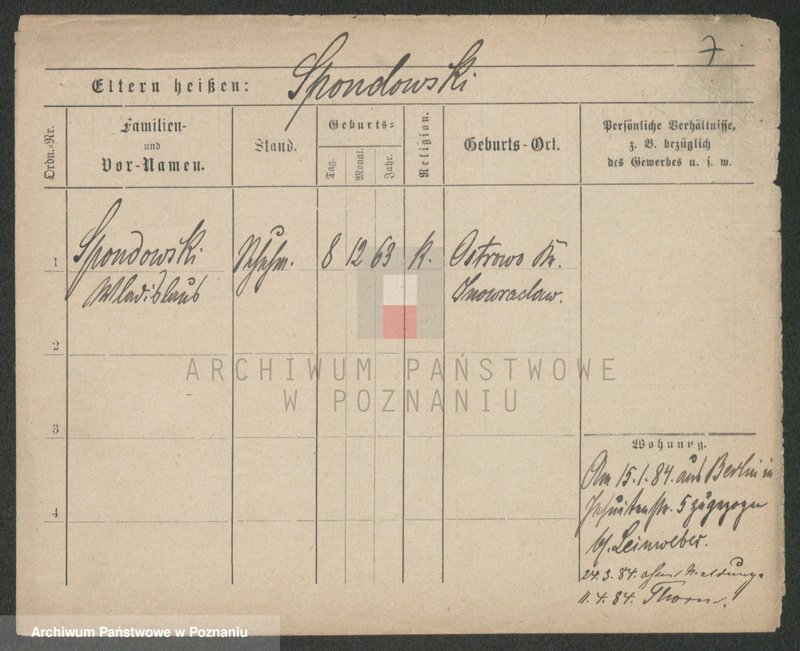 7
Eltern heißen: Spondowski
Ordn.-Nr.
Familien-
und
Vor-Namen.
Stand.
Geburts-
Tag.
Monat.
Jahr.
Religion.
Geburts-Ort.
Persönliche Verhältnisse,
z. B. bezüglich
des Gewerbes u. s. w.
1 Spondowski 8 12 63 k. Ostrowo Kr.
Wladislaus Inowraclaw.
2
ARCHIWUM PAŃSTWOWE
W POZNANIU
3
Wohnung.
Am 15.1.84. aus Berlin in
Jesuitenstr. 5 zugezogen
b/. Leinweber.
4
24.3.84. ohne Meldung.
11.4.84. Thorn.
Archiwum Państwowe w Poznaniu